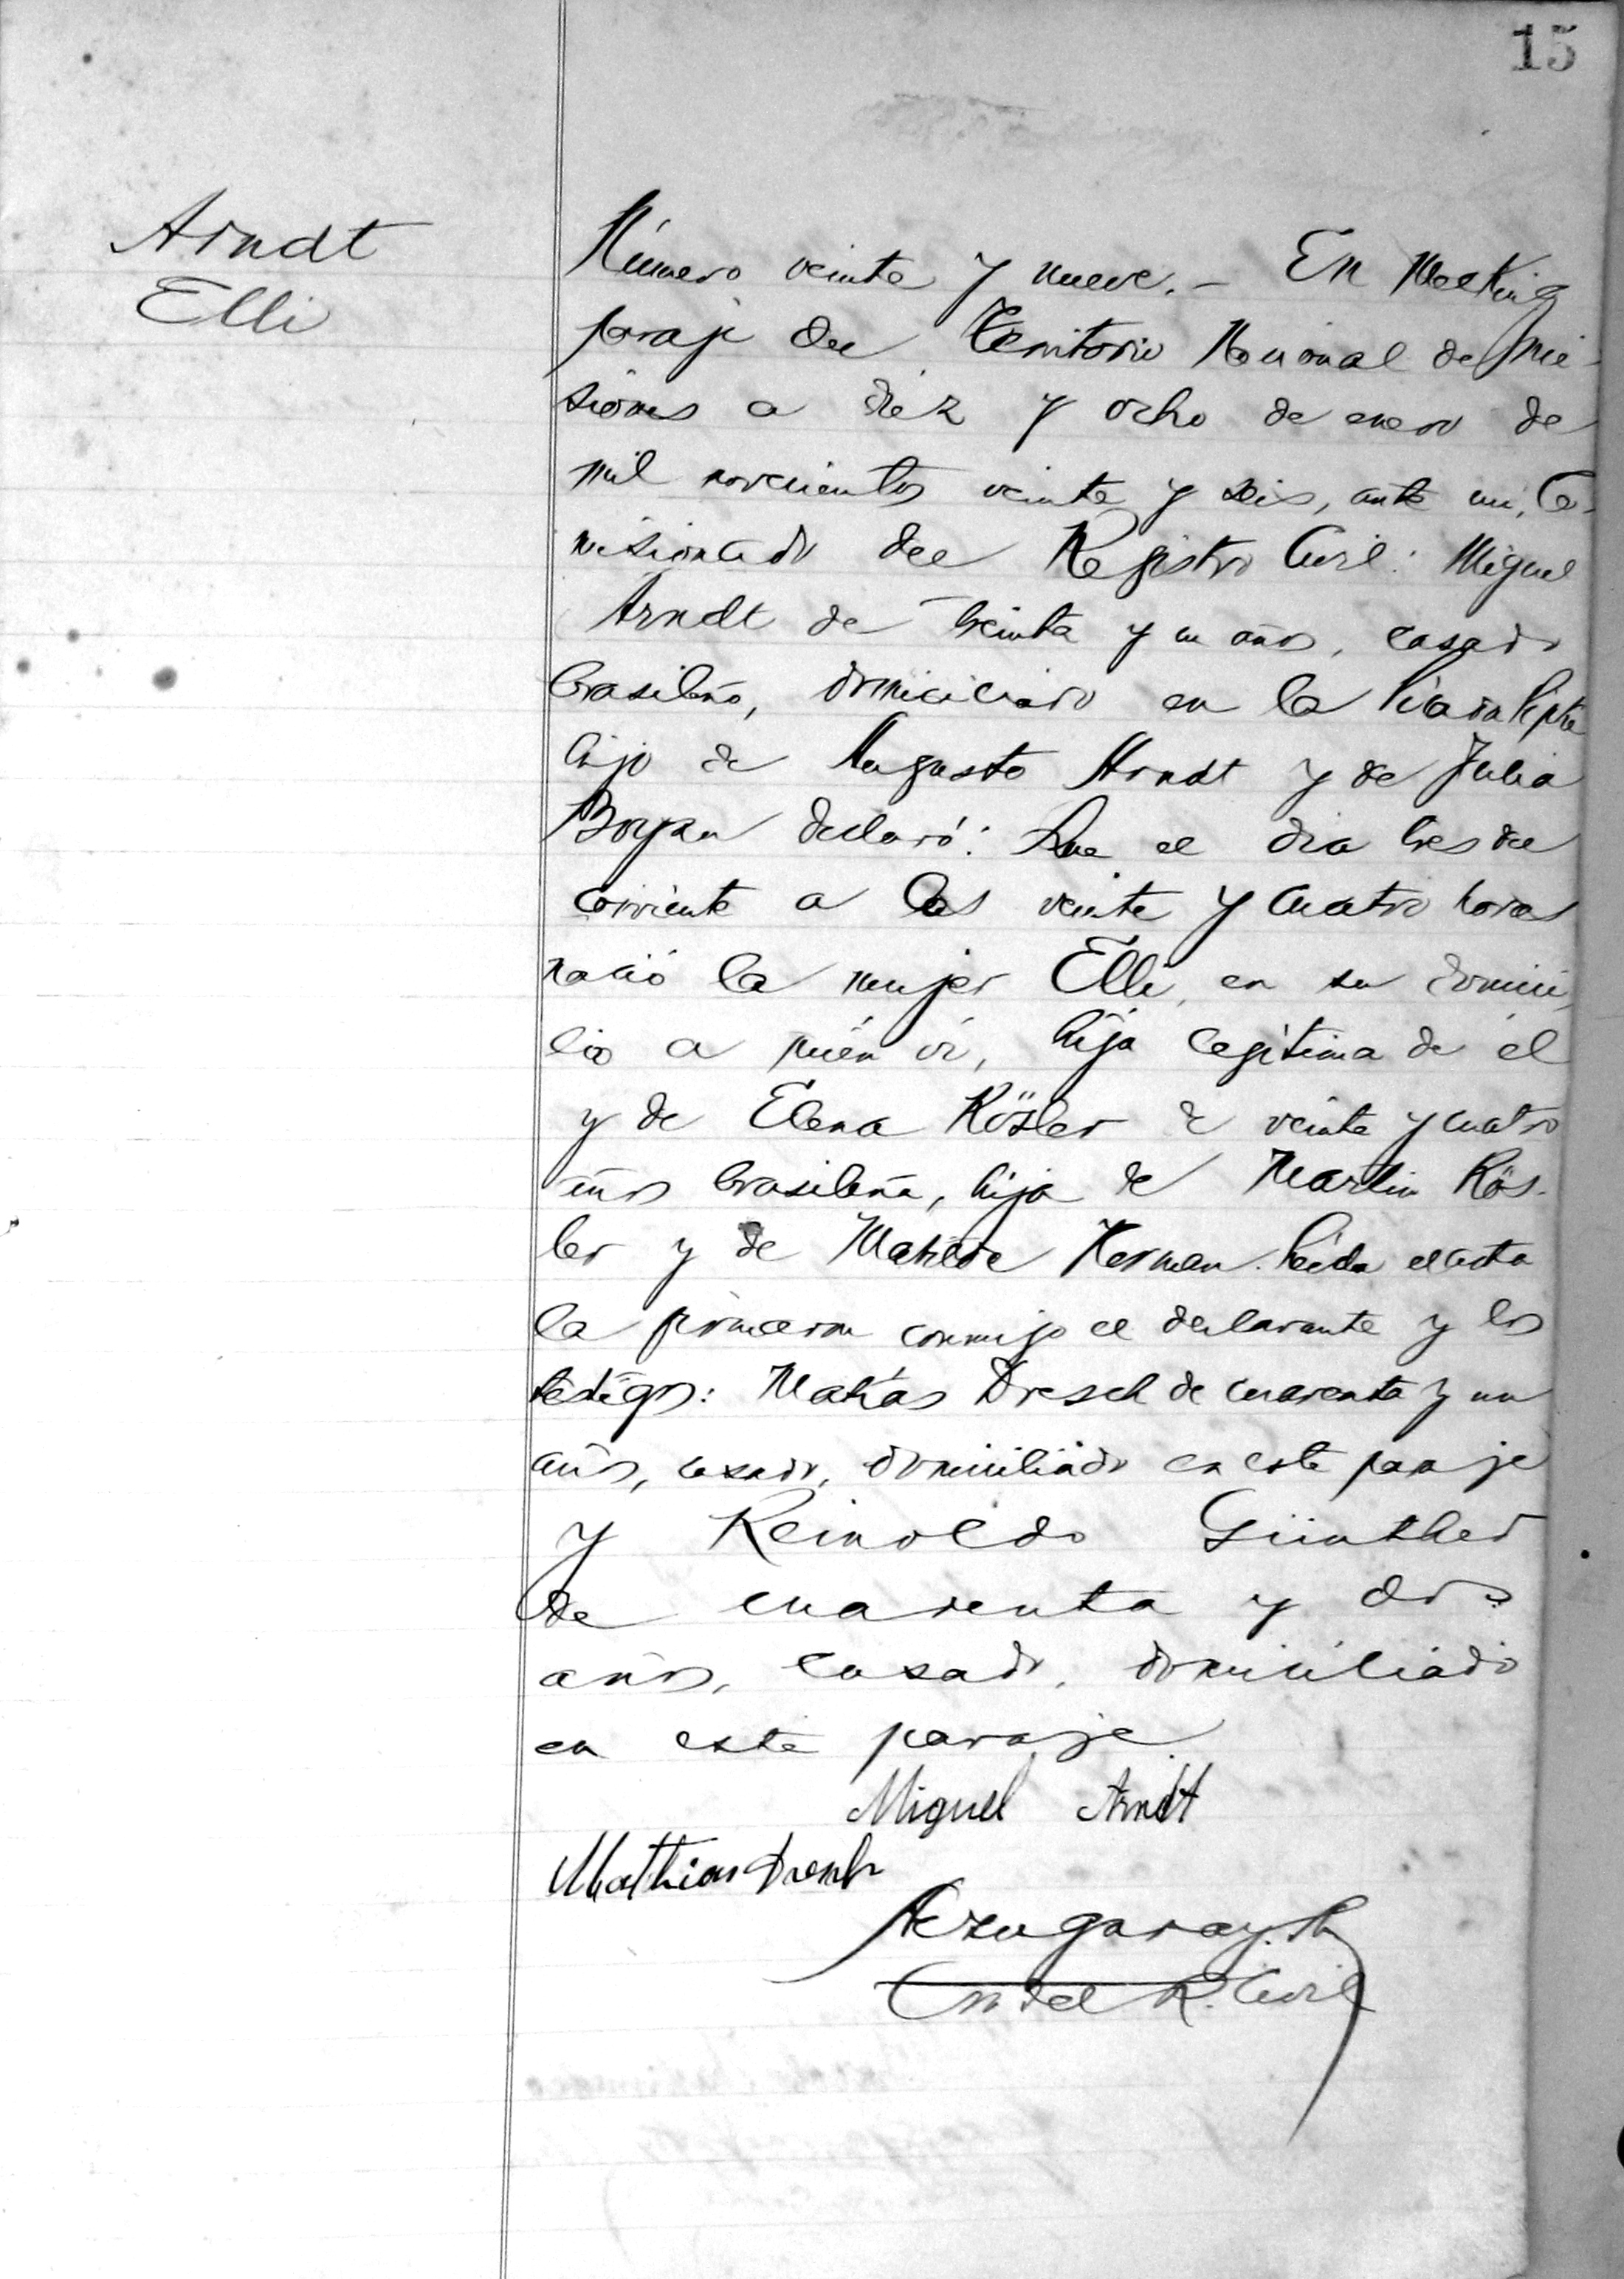 15
Arndt
Elli
Número veinte y nueve. - En Mecking
paraje del Territorio Nacional de Mi-
siones a diez y ocho de enero de
mil novecientos veinte y seis, ante mi, Co-
misionado del Registro Civil: Miguel
Arndt de treinta y un años, casado
brasileño, domiciliado en la Picada
hijo de Augusto Arndt y de Julia
declaró: Que el dia tres del
corriente a las veinte y cuatro horas
nació la mujer Elli, en su domici
lio a quién ví, hija legítima de él
y de Elena Kösler de veinte y cuatro
años brasileña, hija de Martin Kös-
ler y de Matilde Kerman. Leida el acta
la firmaron conmigo el declarante y los
testigos: Matías Dresch de cuarenta y un
años, casado, domiciliado en este paraje
y Reinoldo Günther
de cuarenta y dos
años, casado, domiciliado
en este paraje
Miguel Arndt
Mathias Dresch
R. Civil